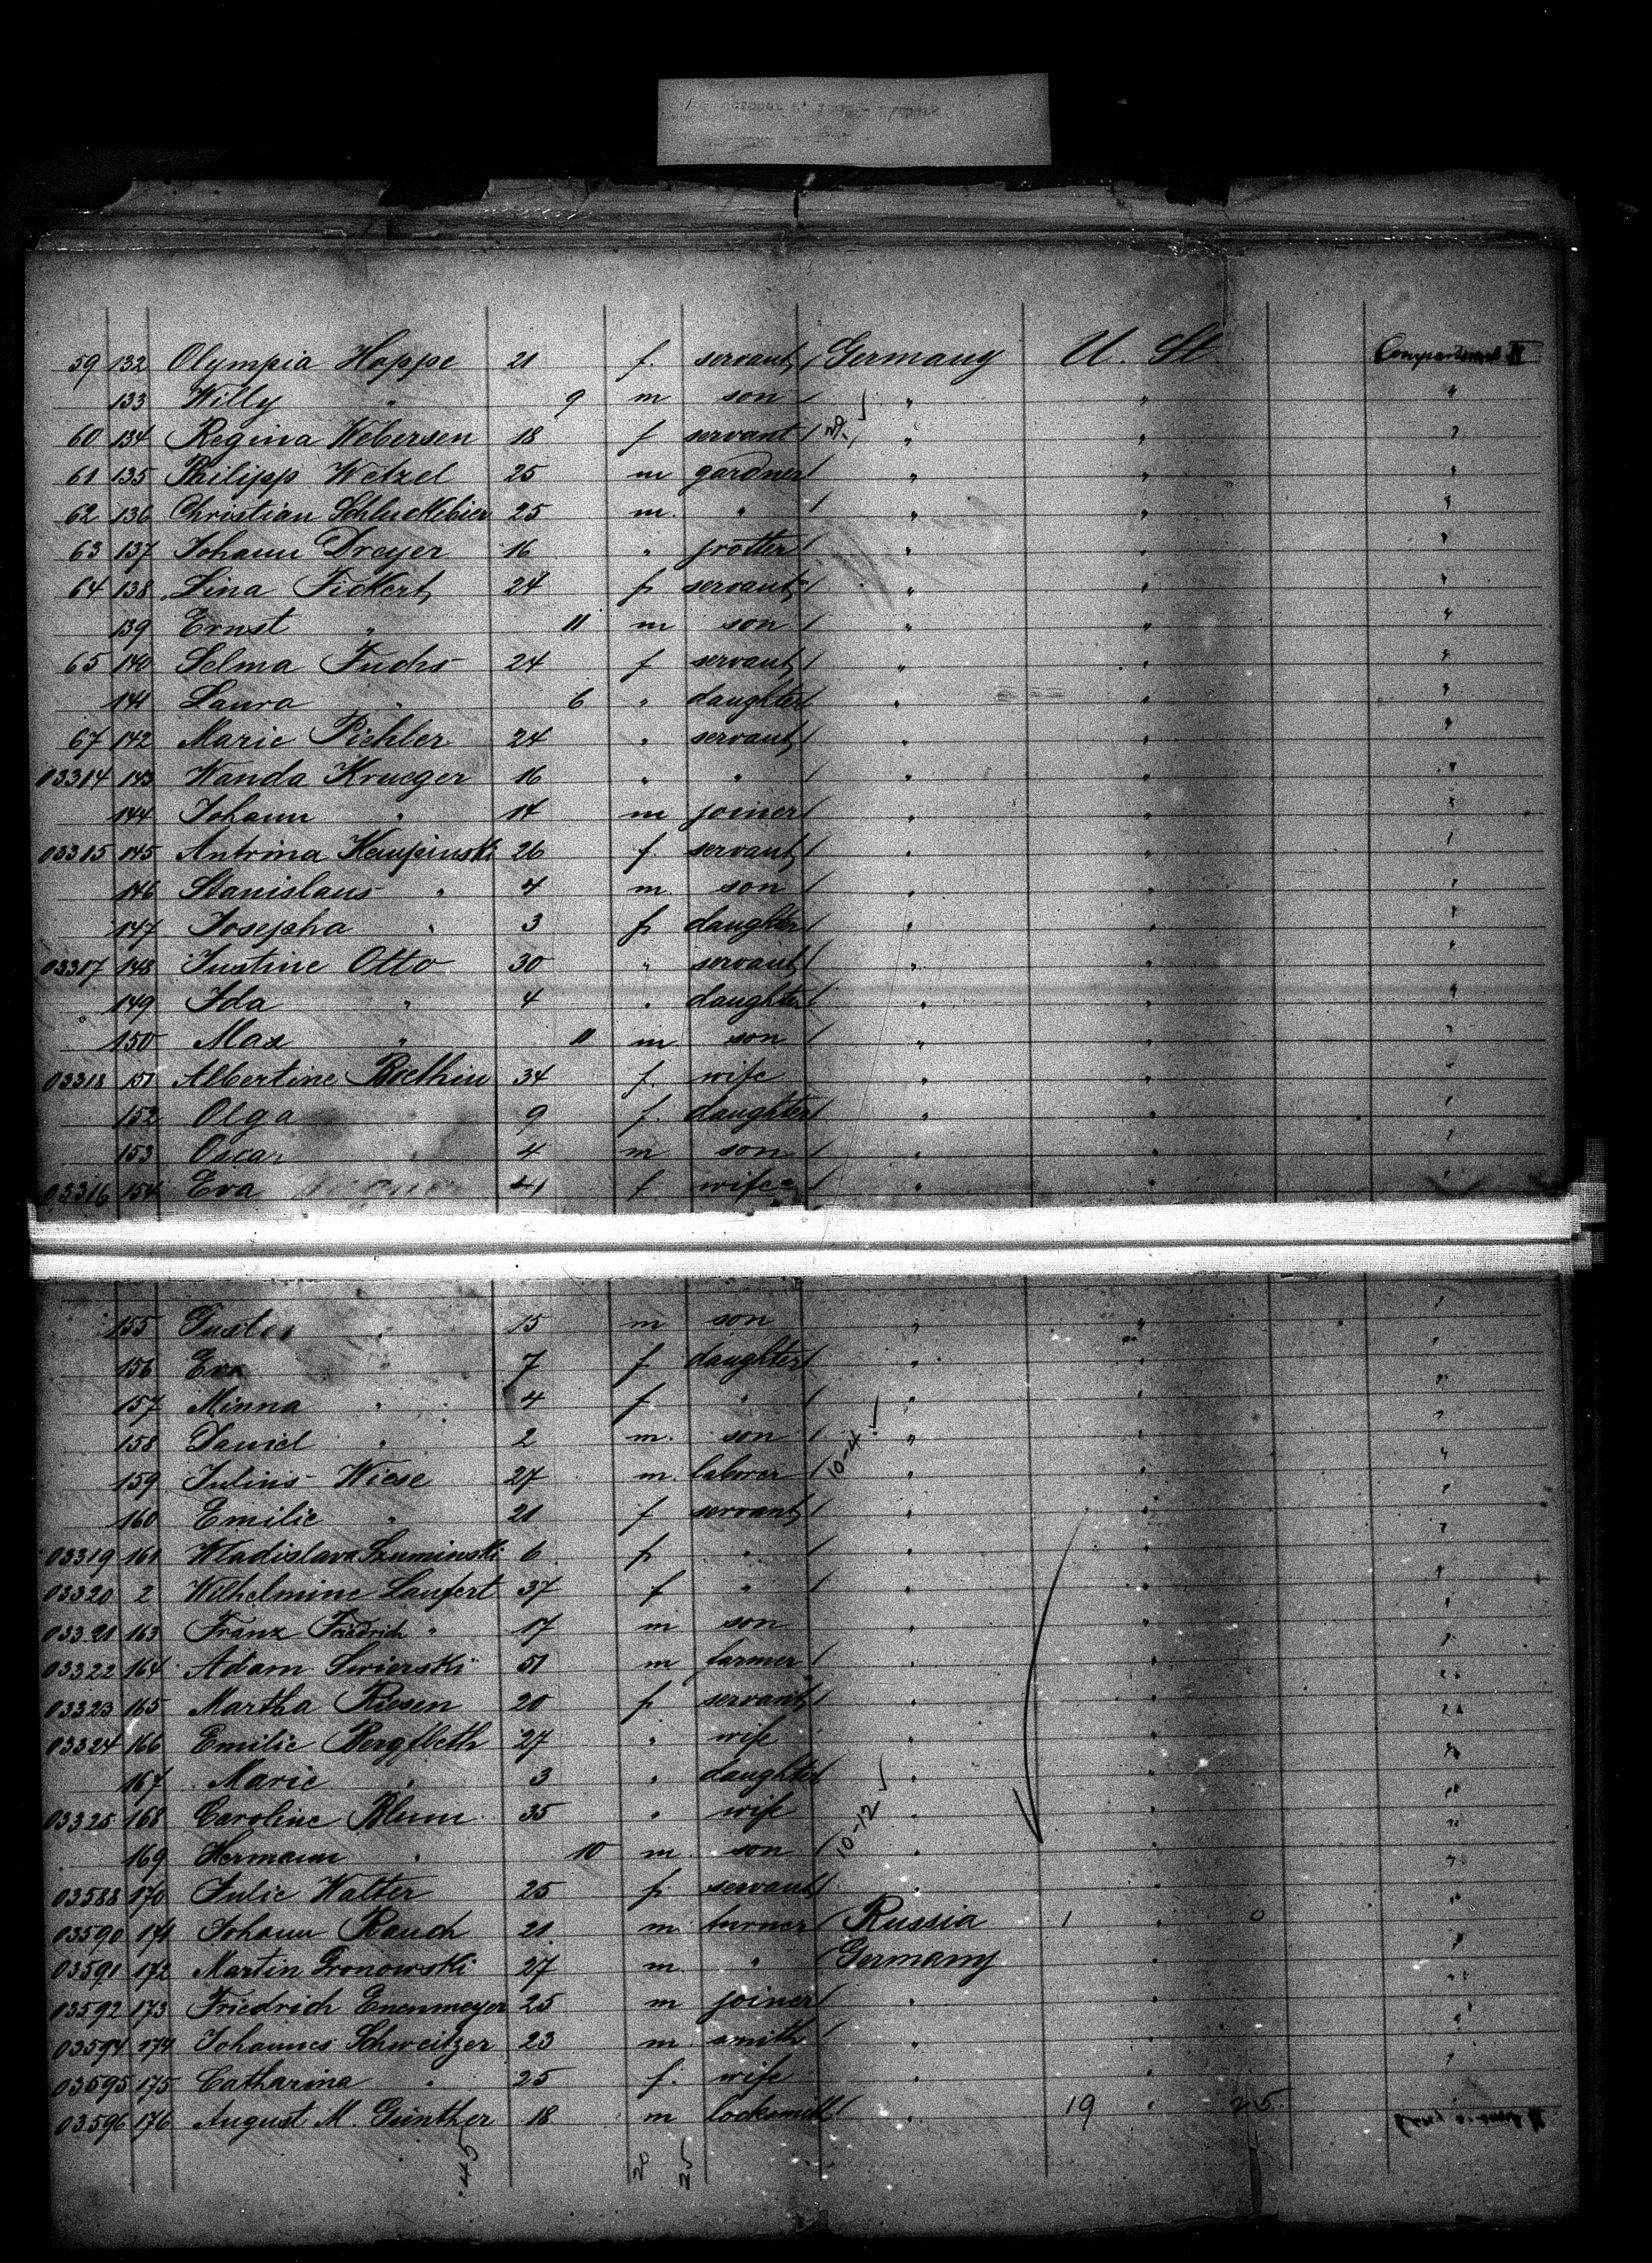 59 132 Olympia Hoppe 21 f. servant / Germany U. St Compartment II
133 Willy " 9 m son / " " "
60 134 Regina Webersen 18 f servant / " " "
61 135 Philipp Wetzel 25 m gardner / " " "
62 136 Christian Schluckebier 25 m. " / " " "
63 137 Johann Dreyer 16 " / " " "
64 138 Lina Fickert 24 f servant / " " "
139 Ernst " 11 m son / " " "
65 140 Selma Fuchs 24 f servant / " " "
141 Laura " 6 " daughter / " " "
67 142 Marie Pichler 24 " servant / " " "
03314 143 Wanda Krueger 16 " " / " " "
144 Johann " 14 m joiner / " " "
03315 145 Antrina 26 f. servant / " " "
146 Stanislaus " 4 m. son / " " "
147 Josepha " 3 f daughter / " " "
03317 148 Justine Otto 30 " servant / " " "
149 Ida " 4 " daughter / " " "
150 Max " 11 m son / " " "
03318 151 Albertine 34 f. wife " " "
152 Olga 9 f. daughter / " " "
153 Oscar 4 m son / " " "
03316 154 Eva 41 f wife / " " "
155 " 15 m son " " "
156 Eva " 7 f daughter / " " "
157 Minna " 4 f " / " " "
158 Daniel " 2 m. son / " " "
159 Julius Wiese 27 m. laborer / 10-4 ✓ " " "
160 Emilie " 21 f servant / " " "
03319 161 Wladislava Szuminski 6 f " / " " "
03320 2 Wilhelmine Laufert 37 f " / " " "
03321 163 Franz Friedrich " 17 m son " " "
03322 164 Adam Swierski 51 m farmer / " " "
03323 165 Martha Riesen 20 f servant / " " "
03324 166 Emilie 27 " wife " " "
167 Marie " 3 " daughter / " " "
03325 168 Caroline Blum 35 " wife " " "
169 Hermann " 10 m. son / 10-12 ✓ " " "
03588 170 Julie Walter 25 f servant / " " "
03590 171 Johann Rauch 21 m turner / Russia 1 " 0 "
03591 172 Martin Gronowski 27 m. " / Germany "
03592 173 Friedrich Enenmeyer 25 m joiner / " " "
03594 174 Johannes Schweitzer 23 m smith / " " "
03595 175 Catharina " 25 f. wife " " "
03596 176 August M. Günther 18 m locksmith / " 19 " 25
45 20 25